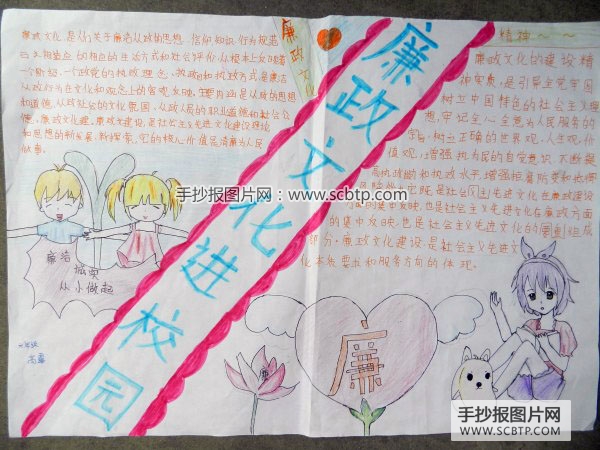 廉政文化进校园
廉政文化
廉政文化是人们关于廉洁从政的思想、信仰、知识、行为规范
和与之相适应的生活方式和社会评价,从根本上反映着
一个阶级、一个政党的执政理念、执政目的和执政方式,是廉洁
从政行为在文化和观念上的客观反映。主要内涵是从政的思想
和道德、从政社会的文化氛围、从政人员的职业道德和社会公
德,廉政文化建
和思想的新发展、新探索,它的核心价值是清廉为人民
做事。
廉洁
诚实
从小做起
精神~~
廉政文化的建设精
神实质,是引导全党牢固
树立中国特色的社会主义理
想,牢记全心全意为人民服务的
宗旨,树立正确的世界观、人生观、价
值观,增强执为民的自觉意识,不断提
高执政能力和执政水平,增强拒腐防变和抵御
风险能力。它既是社会主义先进文化在廉政建设
的集中反映,也是社会主义先进文化在廉政方面
的集中反映,也是社会主义先进文化的重要组成
部分。廉政文化建设是社会主义先进文
化本质要求和服务方向的体现。
廉
手抄报图片网:www.scbtp.com
手抄报图片网
WWW.SCBTP.COM